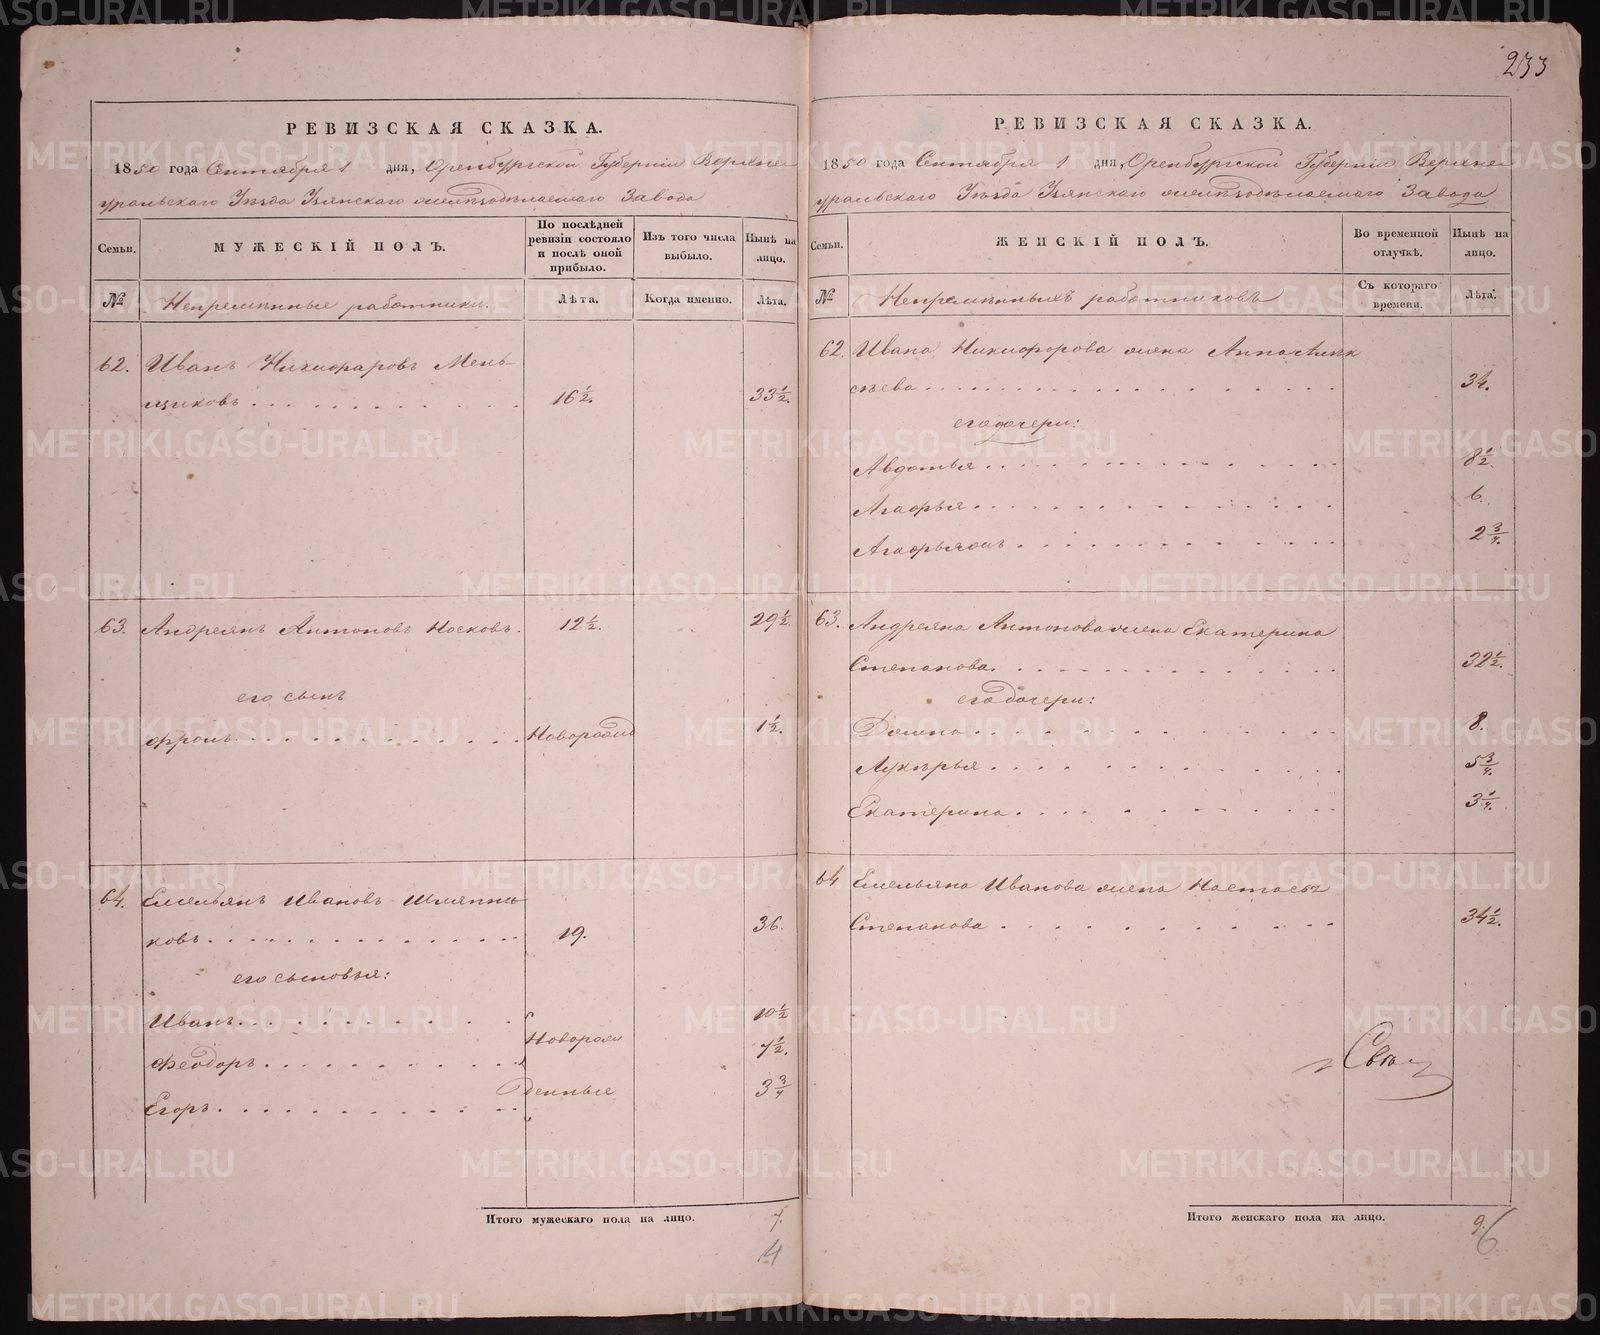 233
РЕВИЗСКАЯ СКАЗКА.
1850 года Сентября 1 дня, Оренбургской Губерніи Верхне-
уральскаго Уѣзда Узянскаго желѣзодѣлаемаго Завода
Семьи.
МУЖЕСКІЙ ПОЛЪ.
По послѣдней
ревизіи состояло
и послѣ оной
прибыло.
Изъ того числа
выбыло.
Нынѣ на
лицо.
№
Непремѣнные работники.
Лѣта.
Когда именно.
Лѣта.
62. Иванъ Никифаровъ Мень-
щиковъ 16½. 33½.
63. Андреянъ Антоновъ Носковъ. 12½. 29½.
его сынъ
Фролъ Новорожд 1½.
64. Емельянъ Ивановъ Шляпни
ковъ 19. 36.
его сыновья:
Иванъ 10½
Новорож
Феодоръ 7½.
денные
Егоръ 3¾
Итого мужескаго пола на лицо. 7.
4
РЕВИЗСКАЯ СКАЗКА.
1850 года Сентября 1 дня, Оренбургской Губерніи Верхне-
уральскаго Уѣзда Узянскаго желѣзодѣлаемаго Завода
Семьи.
ЖЕНСКІЙ ПОЛЪ.
Во временной
отлучкѣ.
Нынѣ на
лицо.
№
Непремѣнныхъ работниковъ
Съ котораго
времени.
Лѣта.
62. Ивана Никифорова жена Анна Алек
сѣева 34.
его дочери:
Авдотья 8½.
Агафья 6.
Агафья 2¾.
63. Андреяна Антонова жена Екатерина
Степанова. 32½.
его дочери:
Домна 8.
Лукѣрья 5¾.
Екатерина 3¼.
64 Емельяна Иванова жена Настасья
Степанова 34½.
Итого женскаго пола на лицо. 9.
6
METRIKI.GASO-URAL.RU